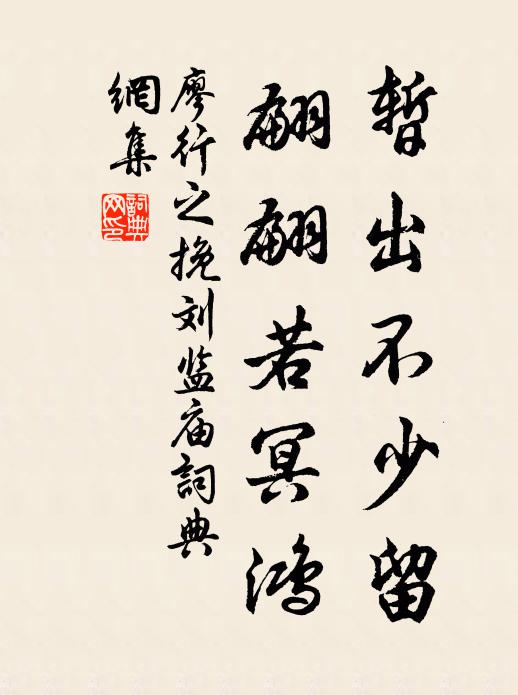 暂出不少留
翩翩若冥鸿
廖行之挽刘监庙詞典
網集
詞典网印